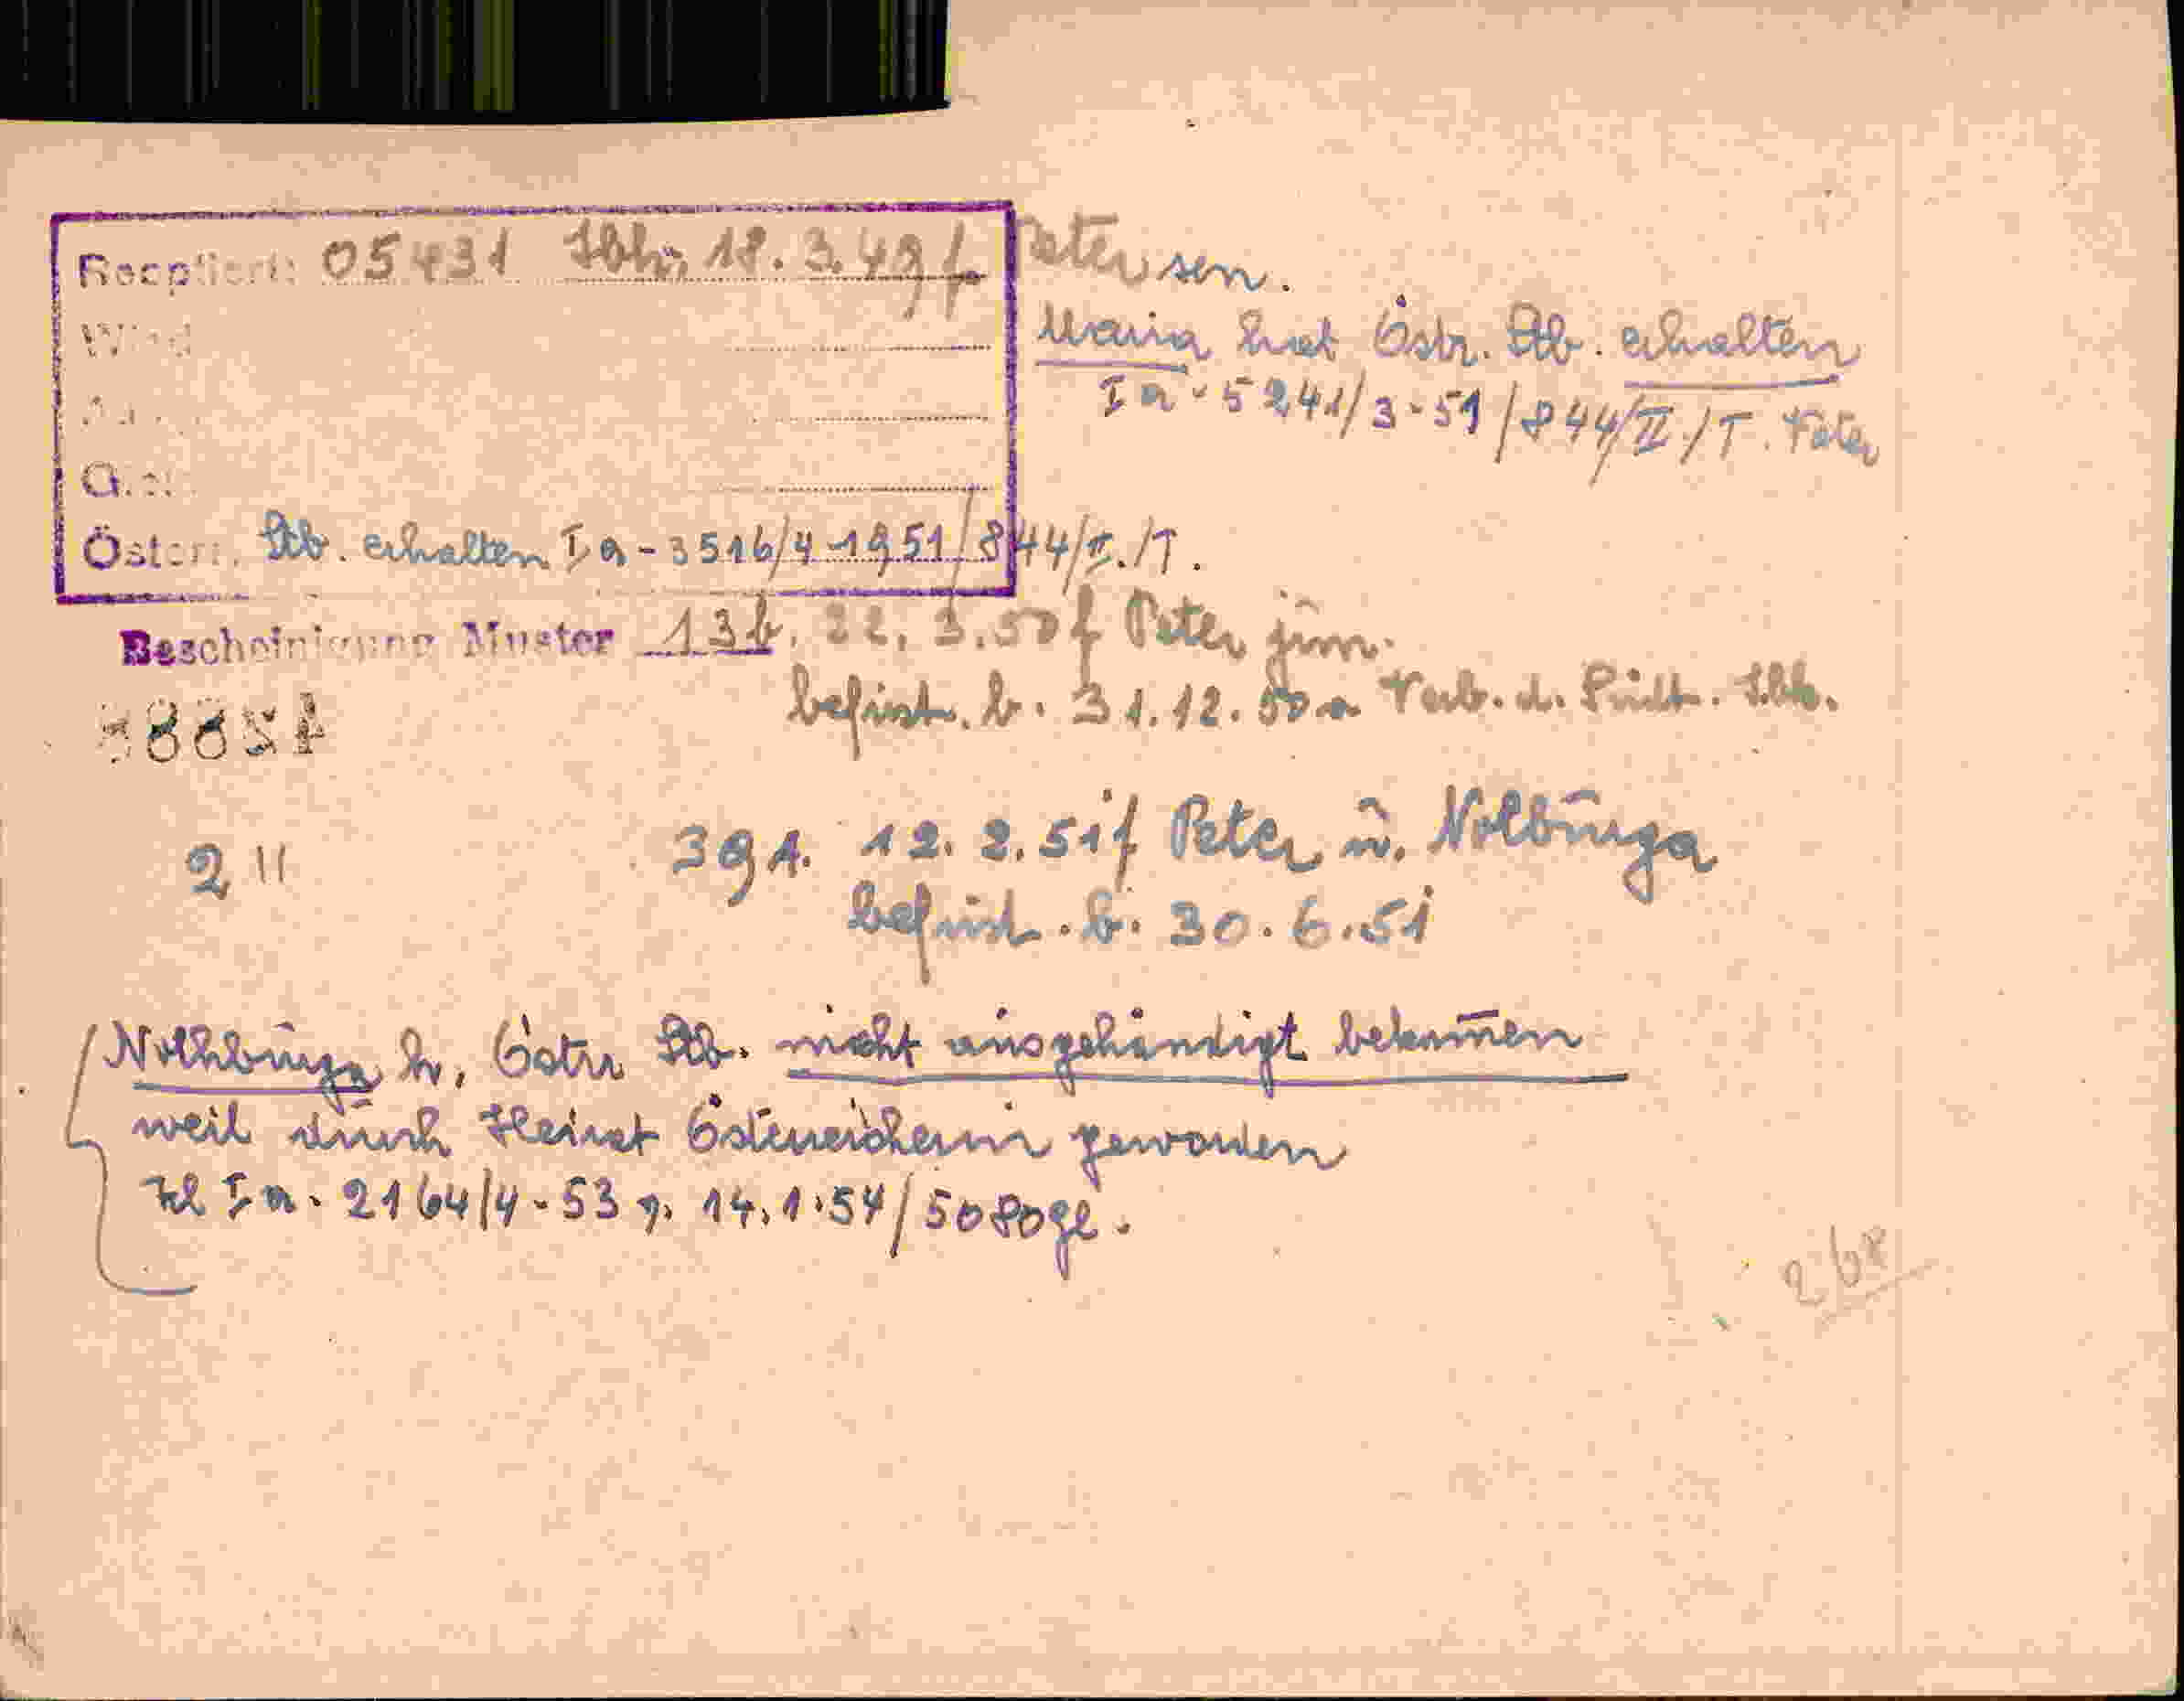 Reoptiert: 05431 Ibk, 18.3.49 f. Peter sen.
Maria hat Östr. Stb. erhalten
Ia-5241/3-51/844/II./T. Peter
Österr. Stb. erhalten Ia-3516/4-1951/844/II./T.
Bescheinigung Muster 13b. 22.3.50 f Peter jun.
befrist. b. 31.12.50 a Verb. d. Südt.
2 "
391. 12.2.51 f Peter u. Notburga
befrist. b. 30.6.51
Nothburga h. Östr Stb. nicht ausgehändigt bekommen
weil durch Heirat Österreicherin geworden
Zl Ia. 2164/4-53 v. 14.1.54/5080
268